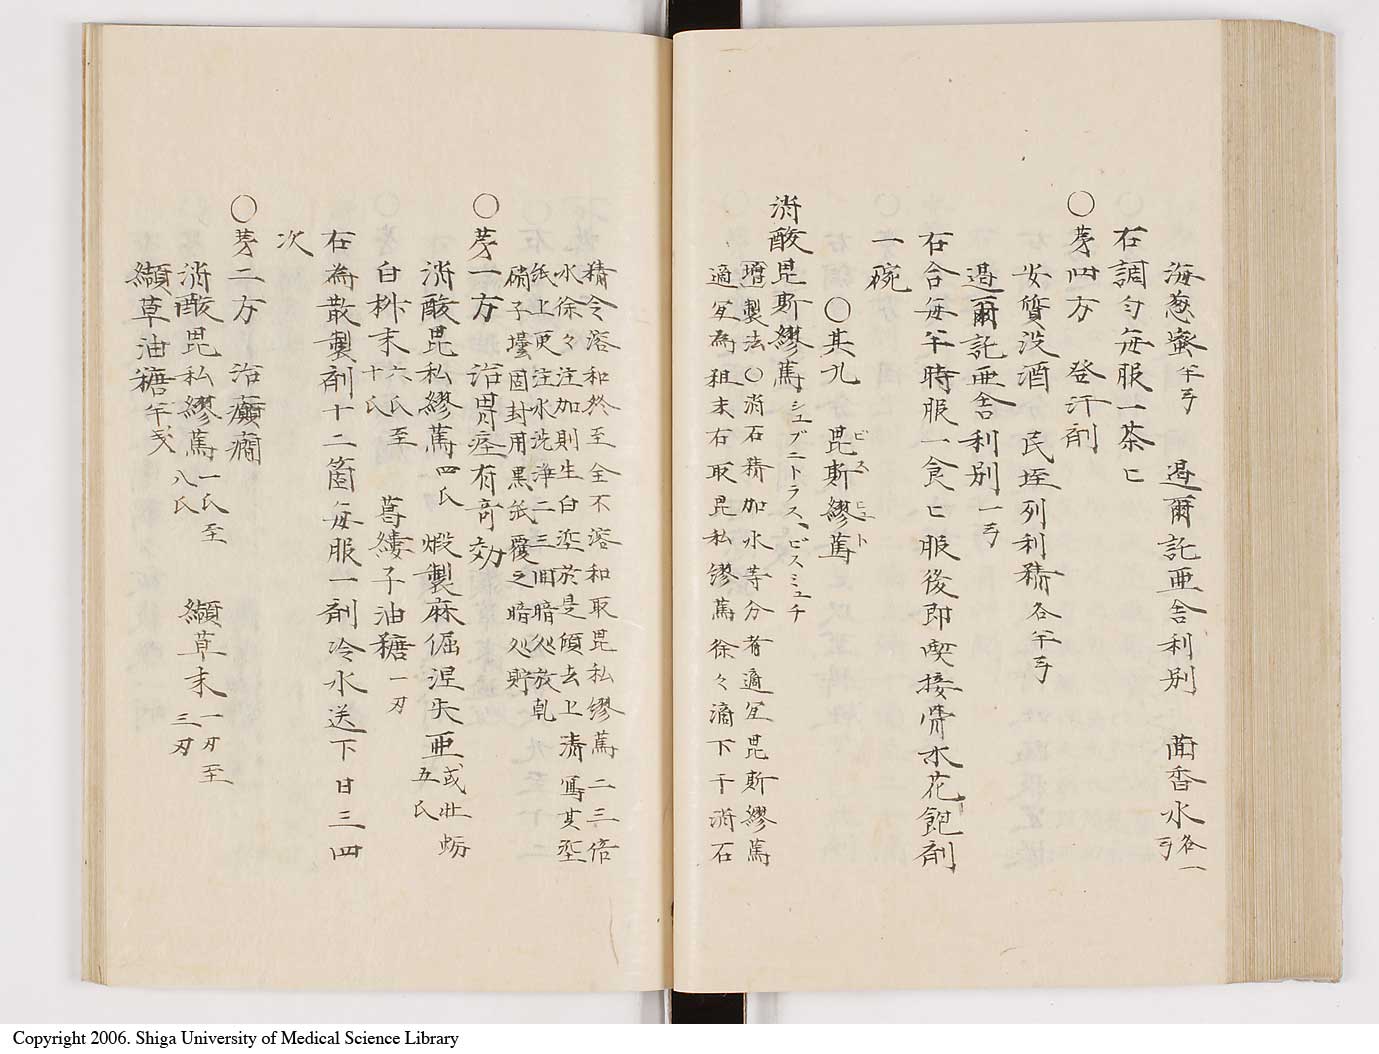 海葱蜜半弓 過爾託亜舎利別 茴香水各一弓
右調匀毎服一茶匕
○苐四方 登汗剤
安質没酒 芪垤列利精各半弓
過爾託亜舎利別一弓
右合毎半時服一食匕服後即喫接骨水花飽剤
一碗
○其九 毘斯繆篤ビスヒュト
消酸毘斯繆篤シュブニトラス、ビスミュチ
製法○消石精加水等分者適宜毘斯繆篤
適宜為粗末右取毘私繆篤徐々滴下于消石
精令溶和終至全不溶和取毘私繆篤二三倍
水徐々注加則生白埿於是傾去上清寫其埿
紙上更注水洗浄二三回暗処放乾
硝子壜固封用黒紙覆之暗処貯
○苐一方 治胃痙有奇効
消酸毘私繆篤四氏 煆製麻倔涅失亜或牡蛎五氏
白糖末六氏至十氏 葛縷子油糖一刃
右為散製剤十二箇毎服一剤冷水送下日三四
次
○苐二方 治癲癇
消酸毘私繆篤一氏至八氏 纈草末一刃至三刃
纈草油糖半戔